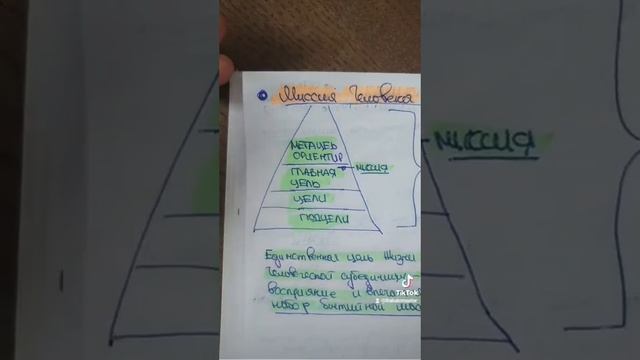 Миссия Человека
МЕТАЦЕЛЬ
ОРИЕНТИР
ГЛАВНАЯ
ЦЕЛЬ
миссия
ЦЕЛИ
ПОДЦЕЛИ
Единственная цель Жизни
Человеческой
восприятие и
набор
TikTok
МИССИЯ